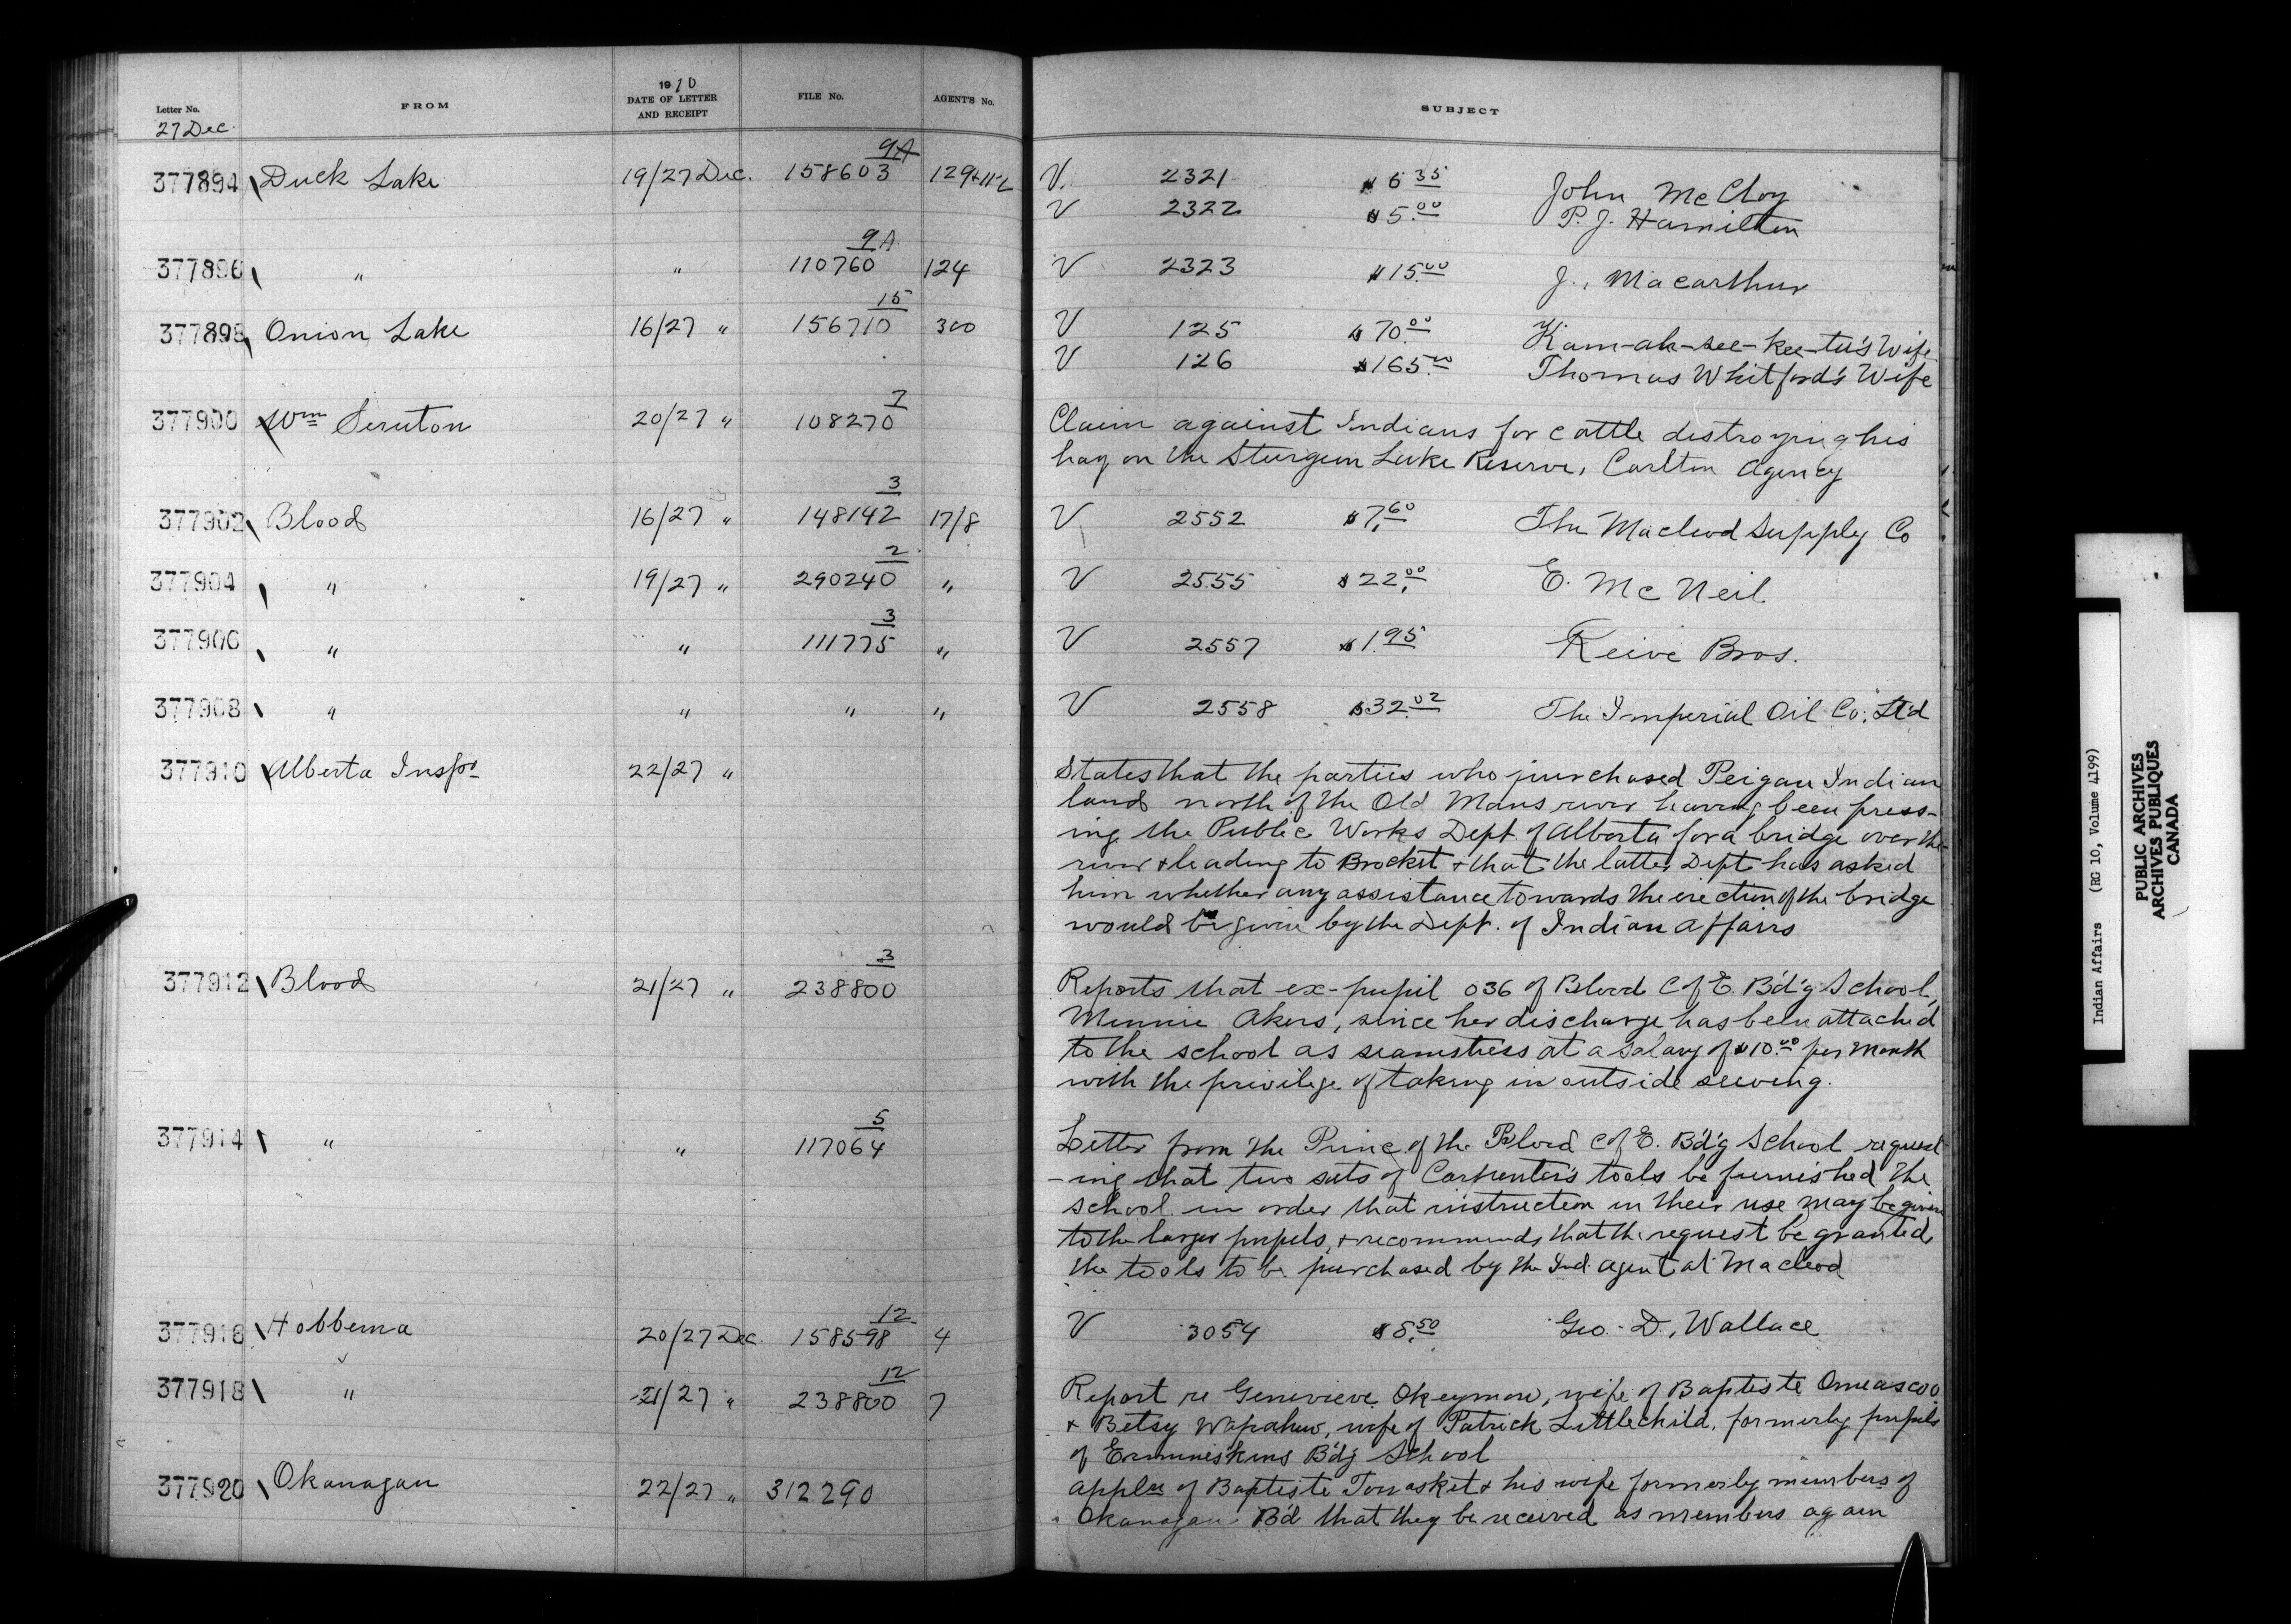 1910
Letter No. FROM DATE OF LETTER AND RECEIPT FILE No. AGENT'S No. SUBJECT
27 Dec.
9A
377894 Duck Lake 19/27 Dec. 158603 129 V. 2321 $6.35 John McCloy
V 2322 $5.00 P. J. Hamilton
9A
377896 " " 110760 124 V 2323 $15.00 J. Macarthur
15
377898 Onion Lake 16/27 " 156710 300 V 125 $70.00 Kam-ah-see-kee-tu's Wife
V 126 $165.00 Thomas Whitford's Wife
7
377900 Wm Seruton 20/27 " 108270 Claim against Indians for cattle distroying his
hay on the Sturgeon Lake Reserve, Carlton Agency
3
377902 Blood 16/27 " 148142 17/8 V 2552 $7.60 The Macleod Supply Co
2
377904 " 19/27 " 290240 " V 2555 $22.00 E. McNeil.
3
377906 " " 111775 " V 2557 $1.95 Reive Bros.
377908 " " " " V 2558 $32.02 The Imperial Oil Co; Ltd
377910 Alberta Inspr 22/27 " States that the parties who purchased Peigan Indian
lands north of the Old Mans river having been press-
ing the Public Works Dept. of Alberta for a bridge over the
river & leading to Brocket & that the latter Dept has asked
him whether any assistance towards the erection of the bridge
would be given by the Dept. of Indian Affairs
3
377912 Blood 21/27 " 238800 Reports that ex-pupil 036 of Blood C of E. B'd'g School,
Minnie Akers, since her discharge has been attached
to the school as seamstress at a salary of $10.00 per month
with the privilege of taking in outside sewing.
5
377914 " " 117064 Letter from the Princ. of the Blood C of E. B'd'g School request
-ing that two sets of Carpenter's tools be furnished the
school in order that instruction in their use may be given
to the larger pupils, & recommends that the request be granted,
the tools to be purchased by the Ind. Agent at Macleod
12
377916 Hobbema 20/27 Dec. 158598 4 V 3054 $8.50 Geo. D. Wallace
12
377918 " 21/27 " 238800 7 Report re Genevieve Okeymow, wife of Baptiste Omeasoo
& Betsy Wapahuw, wife of Patrick Littlechild, formerly pupils
of Ermineskins B'd'g School
377920 Okanagan 22/27 " 312290 Applcn of Baptiste Tonasket & his wife formerly members of
Okanagan B'd that they be received as members again
Indian Affairs (RG 10, Volume 4199)
PUBLIC ARCHIVES
ARCHIVES PUBLIQUES
CANADA